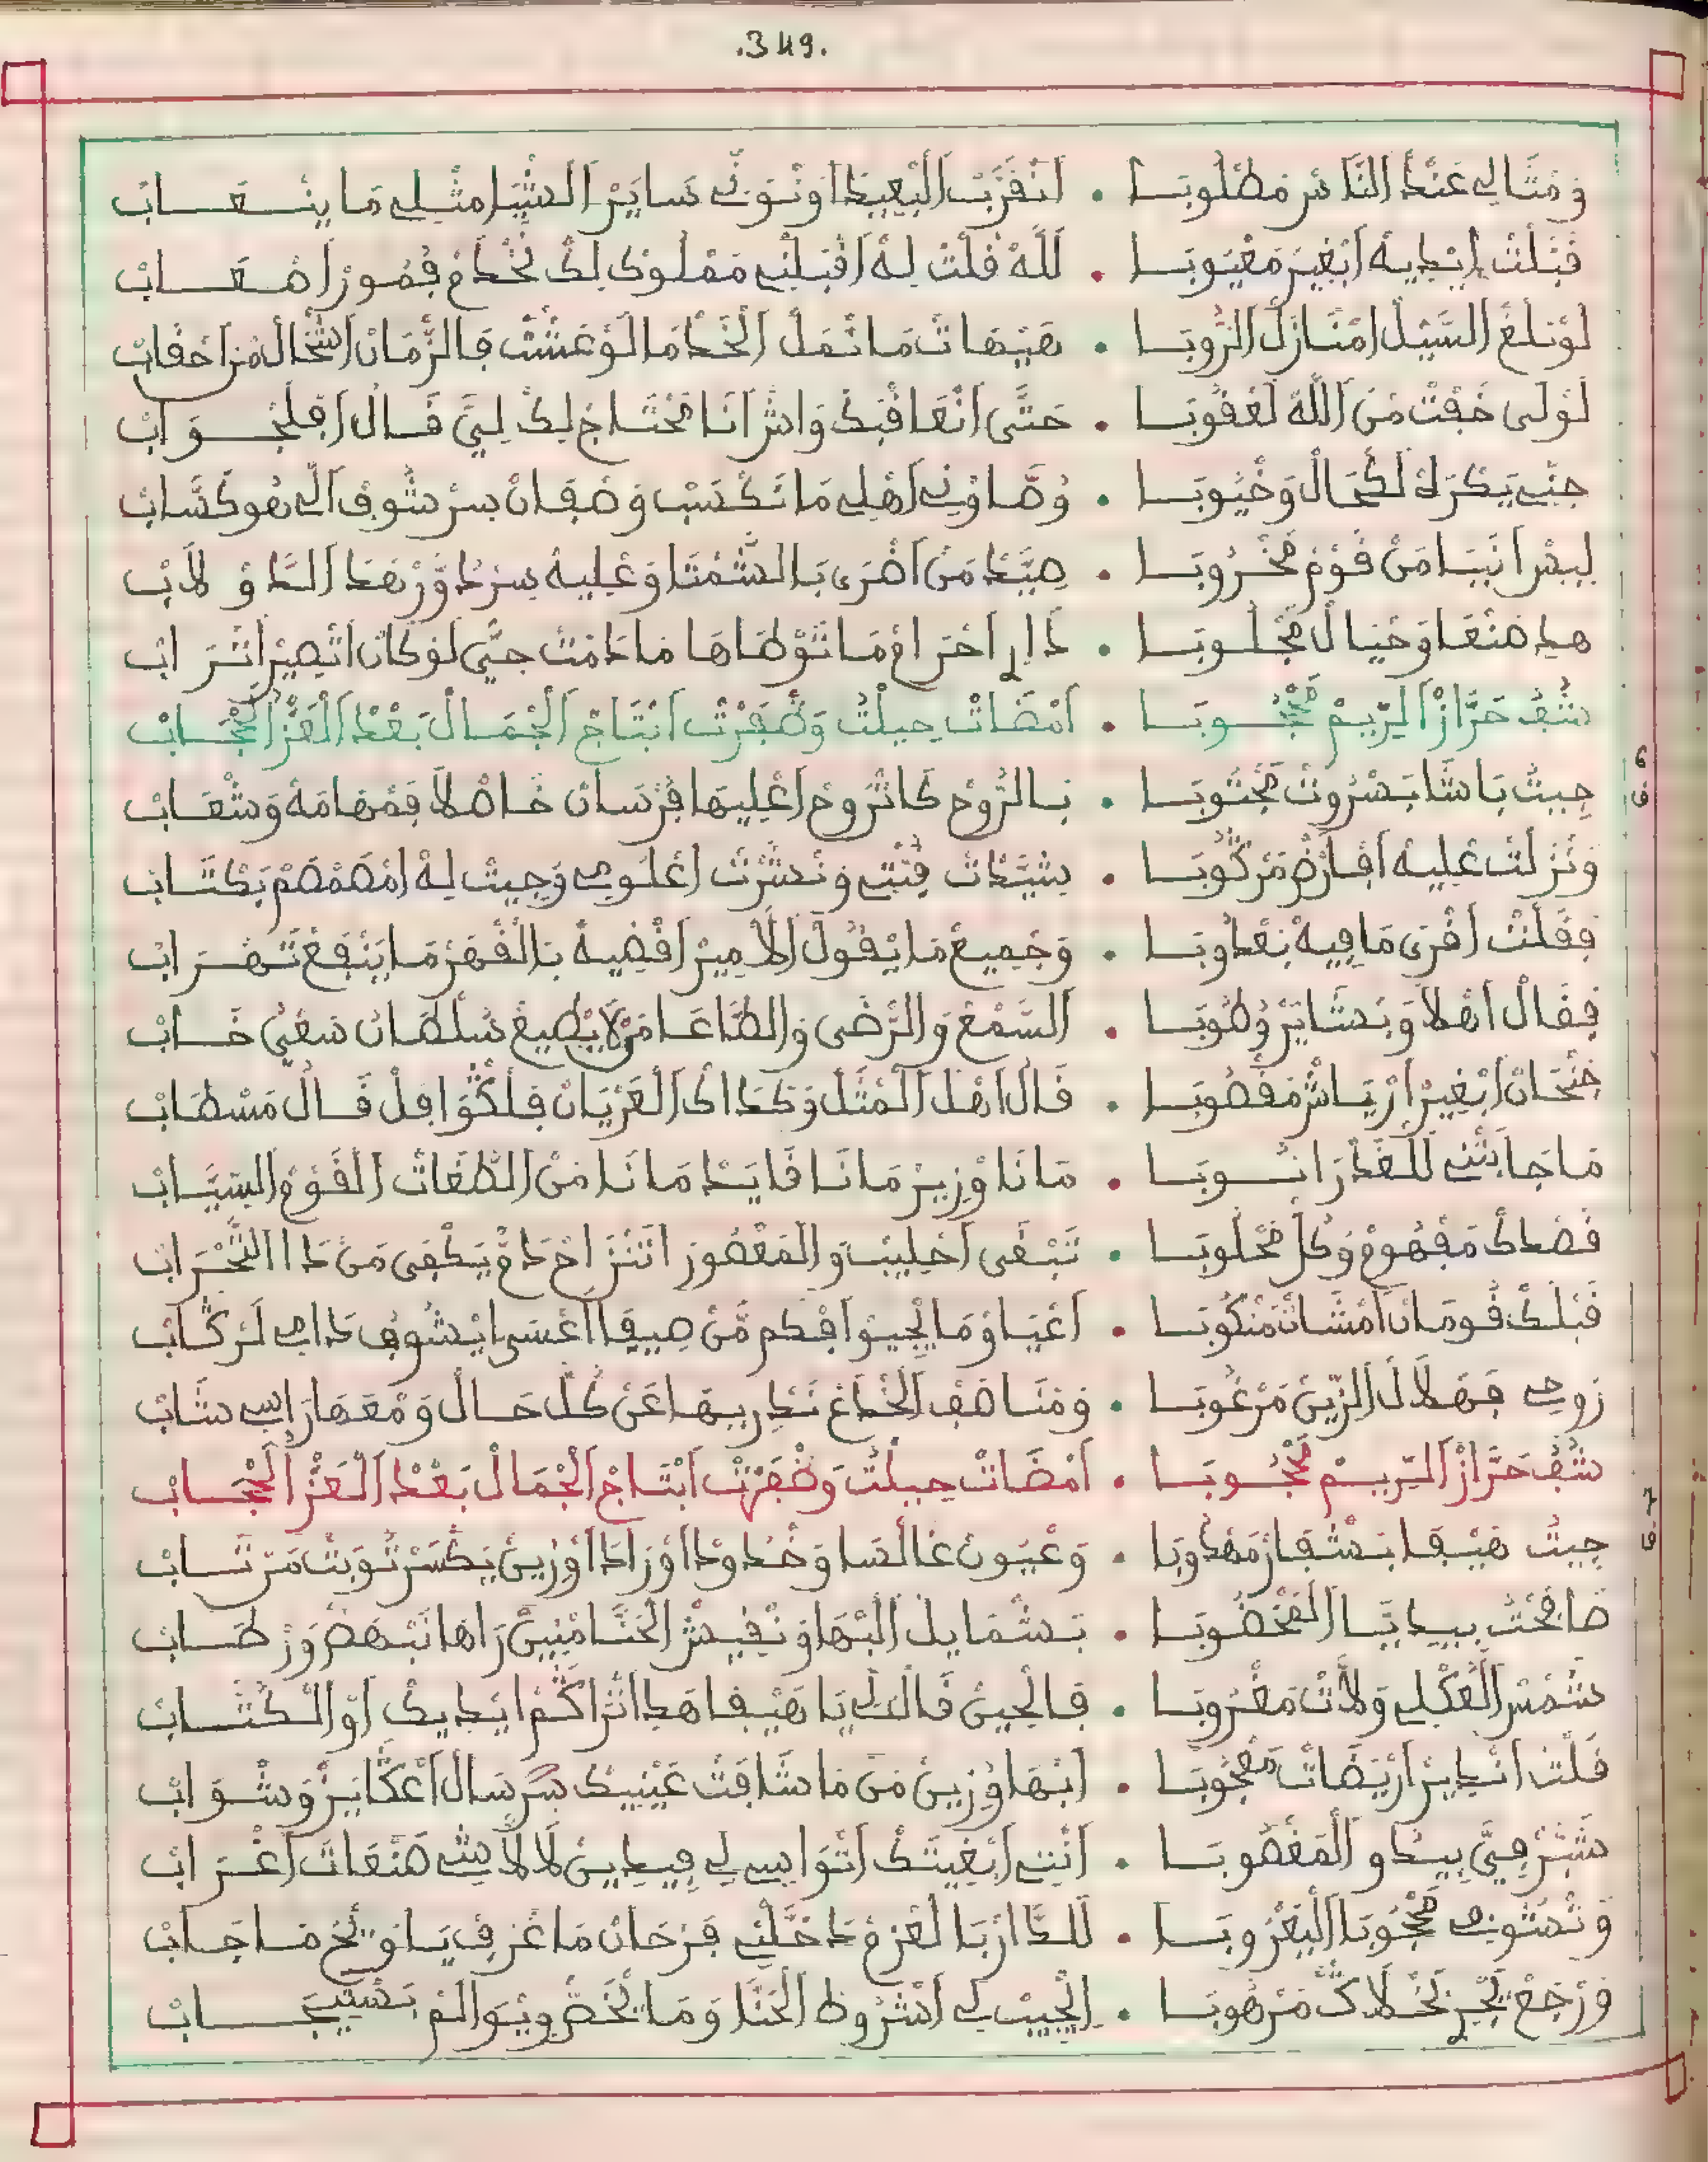 .349.
وَمْثَالِي عَنْدْ النَّاسْ مَطْلُوبَا . انْقَرَّبْ الْبْعِيدْ اوْنْوَنَّى سَايَرْ الشْيَا مثْلِي مَا يَنْعَابْ
قَبْلَتْ إيْدِيهْ ابْغِيرْ مَعْيُوبَا . لَلَّهْ قُلْتْ لِهْ اقْبَلْنِي مَمْلُوكْ لِكْ نَخْدَمْ فُمُورْ اصْعَابْ
لَوْ تَبْلَغْ السَّيْلْ امْنَازَلْ الرُّوبَا . هَيْهَاتْ مَا نْمَلْ الْخْدَامَا لَوْ عَشْتْ فَالزّْمَانْ اشْحَالْ مْن احْقَابْ
لَوْلَى خَفْتْ مَنْ اللَّهْ لَعْقُوبَا . حَتَّى انْعَاقْبَكْ وَاشْ انَا مَحْتَاجْ لِكْ لِيَّ قَالْ افْلَجْوَابْ
جَنِّي يَكْرَهْ لَكْحَالْ وَخْيُوبَا . وُصَّاوْنِي اهْلِي مَا نَكْسَبْ وَصْفَانْ سِرْ شُوفْ الِّي هُو كَسَّابْ
لِيسْ انَيَا مَنْ قَوْمْ مَخْرُوبَا . صِيَّدْ مَنْ اضْرَى بَالشَّمْتَا وَعْلِيهْ سِرْ دَوَّرْ هَدْ الدَّاوْ لَابْ
هدِ صَنْعَا وَخْيَالْ مَجْلُوبَا . دَارِ احْرَامْ مَا تَوْطَاهَا مَا دَمْتْ حَيّْ لَوْ كَانْ اتْصِيرْ اتْرَابْ
شُفْ حَرَّازْ الرِّيمْ مَحْجُوبَا . امْضَاتْ حِيلْتُ وَظْفَرْتْ ابْتَاجْ الْجْمَالْ بَعْدْ الْعَزّْ الْحْجَابْ
جِيتْ بَاشَا بَسْرُوتْ مَجْنُوبَا . بَالرُّوحْ كَانْرُوحْ اعْلِيهَا فُرْسَانْ خَاصْلَا فَمْهَامَهْ وَشْعَابْ
وَنْزَلْتْ عْلِيهْ افَارَحْ مَرْكُوبَا . شَيَّدْتْ قُبْتِي وَنْشَرْتْ اعْلُومِي وَجِيتْ لِهْ امْصَمْصَمْ بَكْتَابْ
فَقَلْتْ اقْرَى مَا فِيهْ بَعْدُوبَا . وَجْمِيعْ مَا يْقُولْ الْامِيرْ اقْضِيهْ بَالْقْهَرْ مَا يَنْفَعْ تَهْرَابْ
فَقَالْ اهْلَا وَبْشَايَرْ وُطُوبَا . السَّمْعْ وَالرّْضَى وَالطَّاعَا مَنْ لَا يْطِيعْ سُلْطَانْ سَعْيُ خَابْ
جَنْحَانْ ابْغِيرْ ارْيَاشْ مَقْصُوبَا . قَالْ اهْلْ الْمْثَلْ وَكَدَاكْ الْعَرْيَانْ فَلْكْوَافَلْ قَالْ مَسْطَابْ
مَا جَابْتْنِي لَلْغَدْرَ انُوبَا . مَا نَا وْزِيرْ مَا نَا قَايَدْ مَا نَا مَنْ الطّْغَاتْ الْقَوْمْ السَّيَّابْ
قَصْدَكْ مَفْهُومْ وَكُلّْ مَحْلُوبَا . تَبْغَى احْلِيبْ وَالْمَعْصُورْ اتْنَزَاحْ دَمّْ يَكْفَى مَنْ دَا التَّخْرَابْ
قَبْلَكْ قُومَانْ امْشَاتْ مَنْكُوبَا . اعْيَاوْ مَا يْجِيوْ افْكُم مَّنْ صِيفَا اعْسَى يْشُوفْ دَابِي لَرْكَابْ
رُوحِي فَهْلَالْ الزِّينْ مَرْغُوبَا . وَمْنَاصَفْ الْخْدَاعْ نَدْرِيهَا عَنْ كُلّْ حَالْ وَمْعَهَا رَاسِي شَابْ
شُفْ حَرَّازْ الرِّيمْ مَحْجُوبَا . امْضَاتْ حِيلْتُ وَظْفَرْتْ ابْتَاجْ الْجْمَالْ بَعْدْ الْعَزّْ الْحْجَابْ
جِيتْ هَيْفَا بَشْفَارْ مَهْدُوبَا . وَعْيُونْ غَالْسَا وَخْدُودْ اوْرَادْ اوْزِينْ يَكْسَرْ تُوبَتْ مَنْ تَابْ
صَافَحْتُ بِيدِيَّا الْمَخْضُوبَا . بَشْمَايَلْ الْبْهَا وَنْفِيشْ الْحَنَّا مْنِينْ رَاهَا نَبْهَضْ وَرْطَابْ
شَمْسْ الْعُكْلِي وَلَّاتْ مَغْرُوبَا . فَالْحِينْ قَالْ لِي يَا هَيْفَا هَدِ اثْرَاكُمْ ايْدِيكْ اوْ الْكْتَابْ
قُلْتْ انْدِيرْ ارْيَضَاتْ مَعْجُوبَا . ابْهَاوْزِينْ مَنْ مَا شَافَتْ عَيْنِيكْ سَرْ سَالْ اعْكَايَزْ وَشْوَابْ
شَبَّرْ فِيَّ بِيدُو الْمَغْصُوبَا . انْتِ ابْغِيتَكْ اتْوَاسِي لِي فِيدِينْ لَالَّا شِي صَنْعَاتْ اغْرَابْ
وَتْسُونِي مَحْجُوبَا الْبَغْرُوبَا . لَلدَّارْ بَالْعَزْمْ دَخَّلْنِي فَرْحَانْ مَا عْرَفْ يَا وَيْحْ مَا جَابْ
وَرْجَعْ يَجْرِي بَخْلَاكْ مَرْهُوبَا . ايْجِيبْ لِي اشْرُوطْ الْحَنَّا وَمَا يْخَصّْ وِيْوَالَمْ بَسْتِيجَابْ
6
ق
7
ق